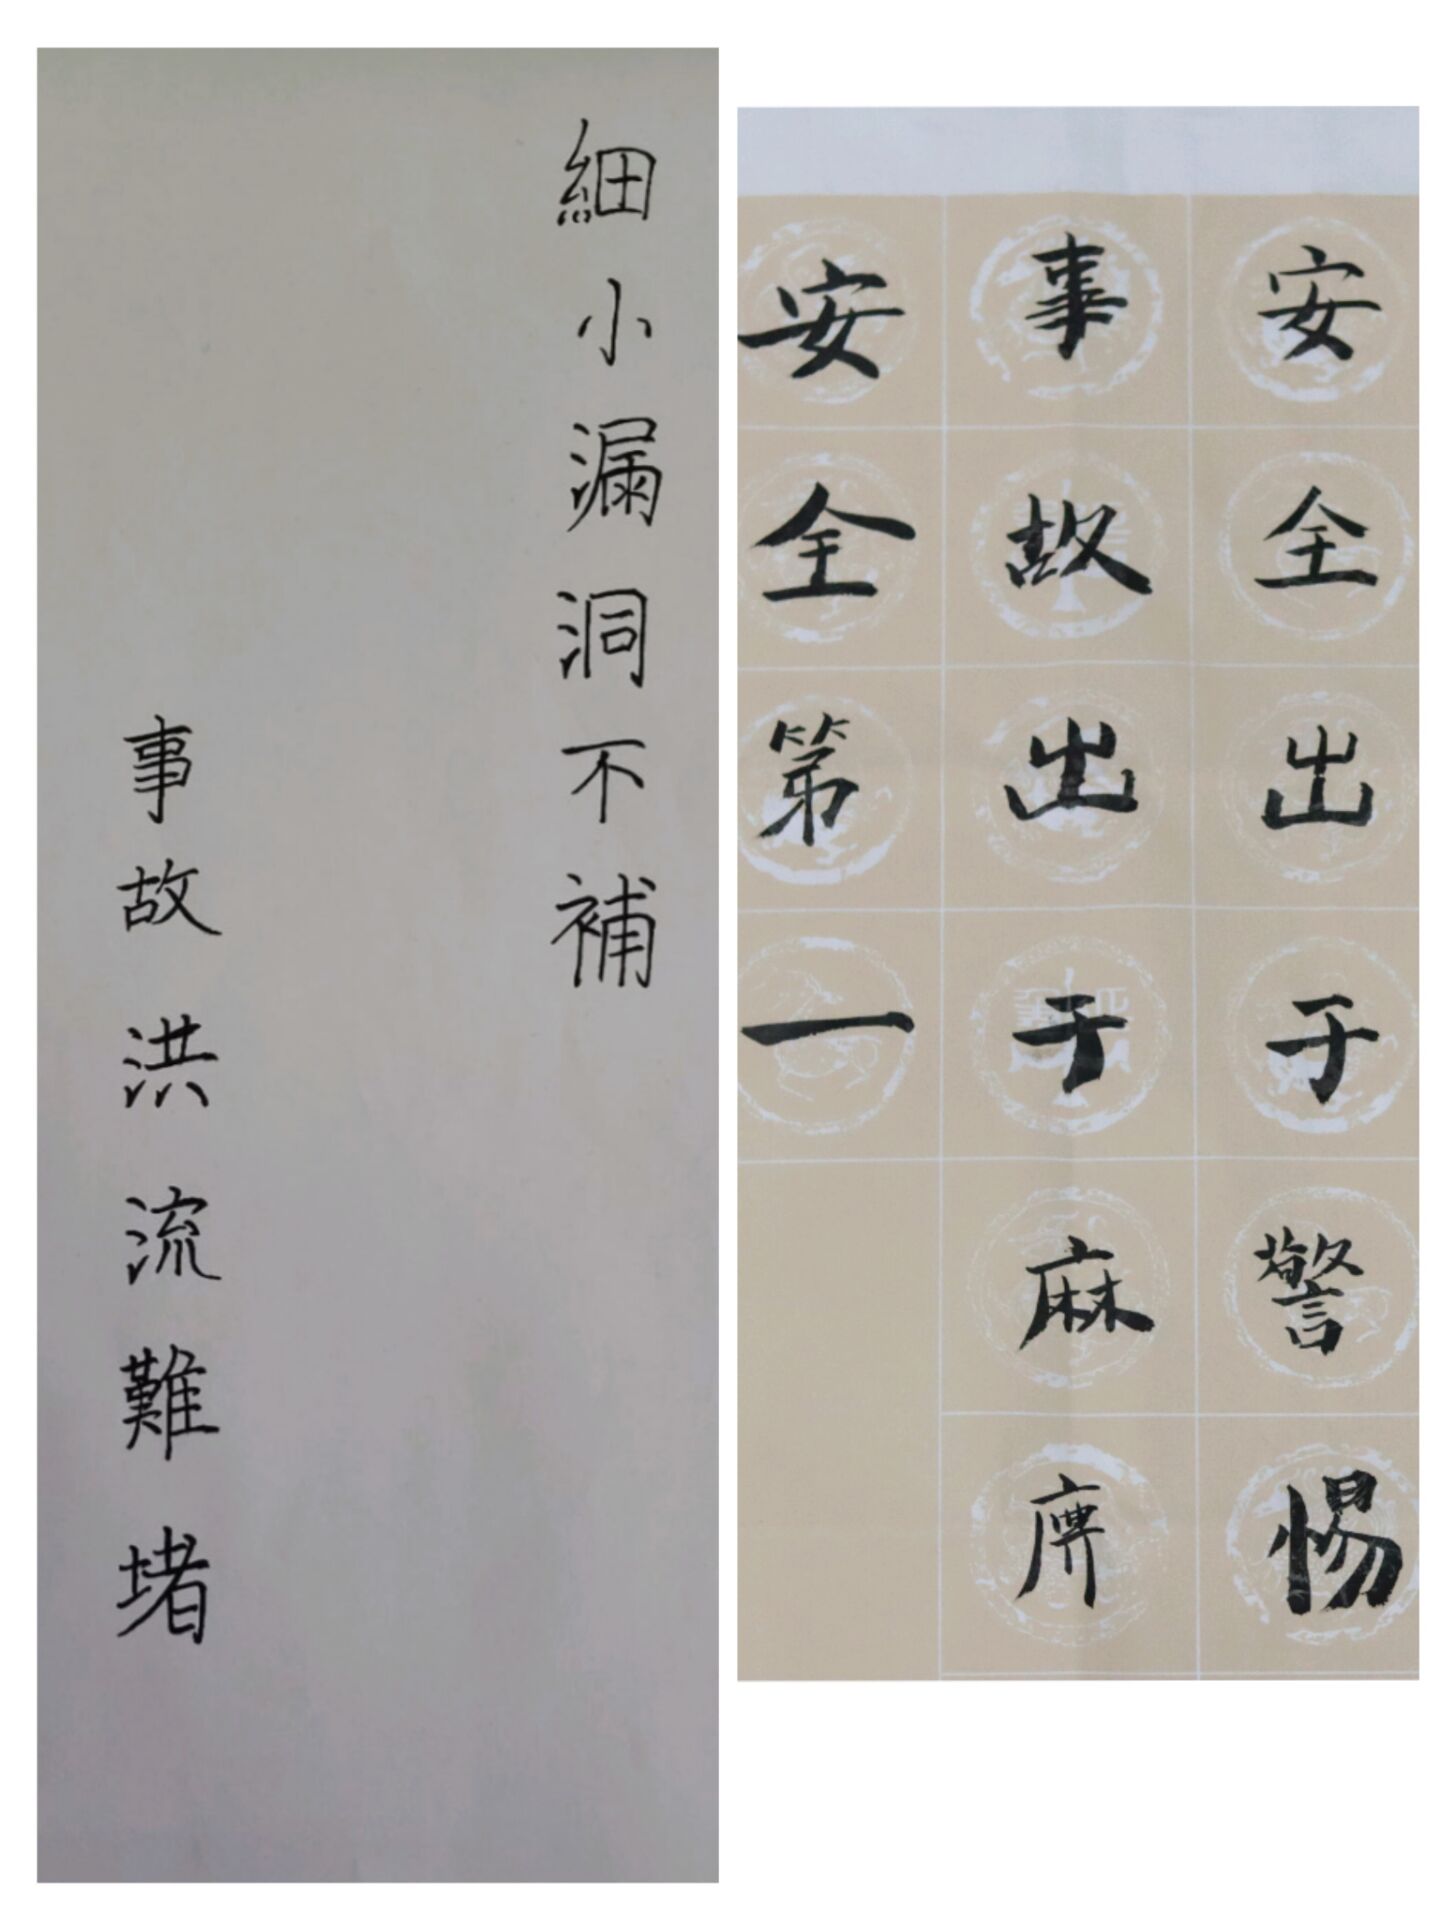 細小漏洞不補
事故洪流難堵
安全出于警惕
事故出于麻痹
安全第一